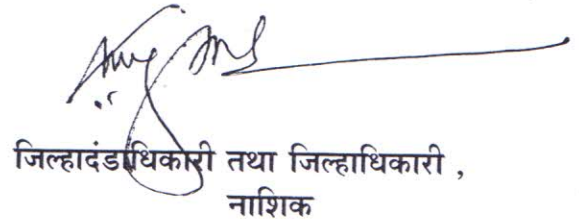 जिल्हादंडाधिकारी तथा जिल्हाधिकारी ,
नाशिक